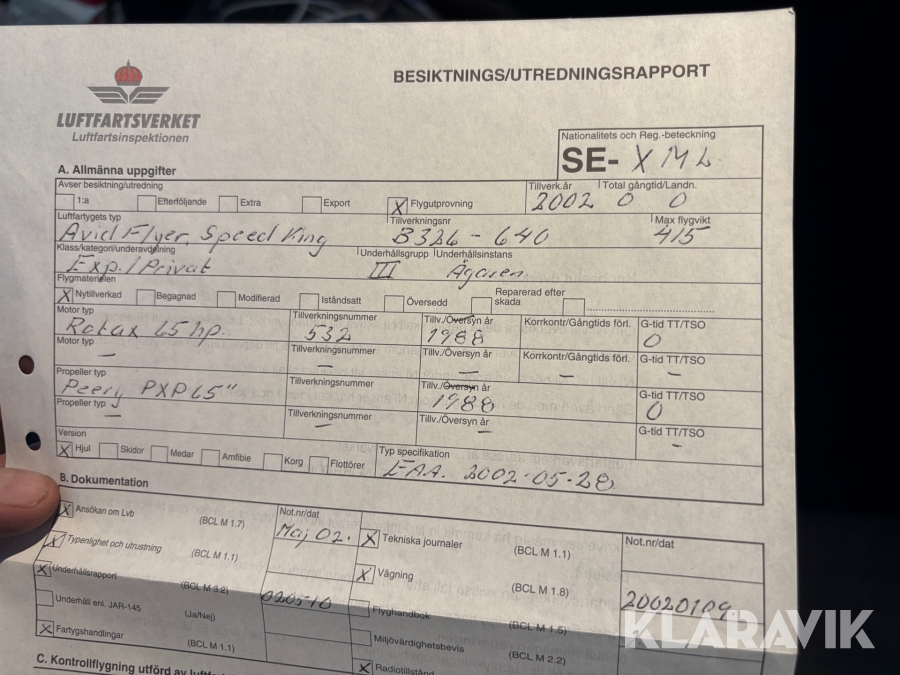 BESIKTNINGS/UTREDNINGSRAPPORT
LUFTFARTSVERKET
Luftfartsinspektionen
Nationalitets och Reg.-beteckning
SE- XML
A. Allmänna uppgifter
Avser besiktning/utredning
1:a Efterföljande Extra Export X Flygutprovning
Tillverk.år Total gångtid/Landn.
2002 0 0
Luftfartygets typ Tillverkningsnr Max flygvikt
Avid Flyer, Speed King B326-640 415
Klass/kategori/underavdelning Underhållsgrupp Underhållsinstans
Exp./Privat III Ägaren
Flygmaterielen
X Nytillverkad Begagnad Modifierad Iståndsatt Översedd Reparerad efter skada
Motor typ Tillverkningsnummer Tillv./Översyn år Korrkontr/Gångtids förl. G-tid TT/TSO
Rotax 65 hp. 532 1988 0
Motor typ Tillverkningsnummer Tillv./Översyn år Korrkontr/Gångtids förl. G-tid TT/TSO
– – – – –
Propeller typ Tillverkningsnummer Tillv./Översyn år G-tid TT/TSO
PXP 65" 1988 0
Propeller typ Tillverkningsnummer Tillv./Översyn år G-tid TT/TSO
– – – –
Version
X Hjul Skidor Medar Amfibie Korg Flottörer
Typ specifikation
2002-05-28
B. Dokumentation
Not.nr/dat Not.nr/dat
X Ansökan om Lvb (BCL M 1.7) Maj 02. X Tekniska journaler (BCL M 1.1)
X Typenlighet och utrustning (BCL M 1.1) X Vägning (BCL M 1.8) 20020109
X Underhållsrapport (BCL M 3.2) 020510 Flyghandbok (BCL M 1.5)
Underhåll enl. JAR-145 (Ja/Nej) Miljövärdighetsbevis (BCL M 2.2)
X Fartygshandlingar (BCL M 1.1) X Radiotillstånd
C. Kontrollflygning utförd av
KLARAVIK